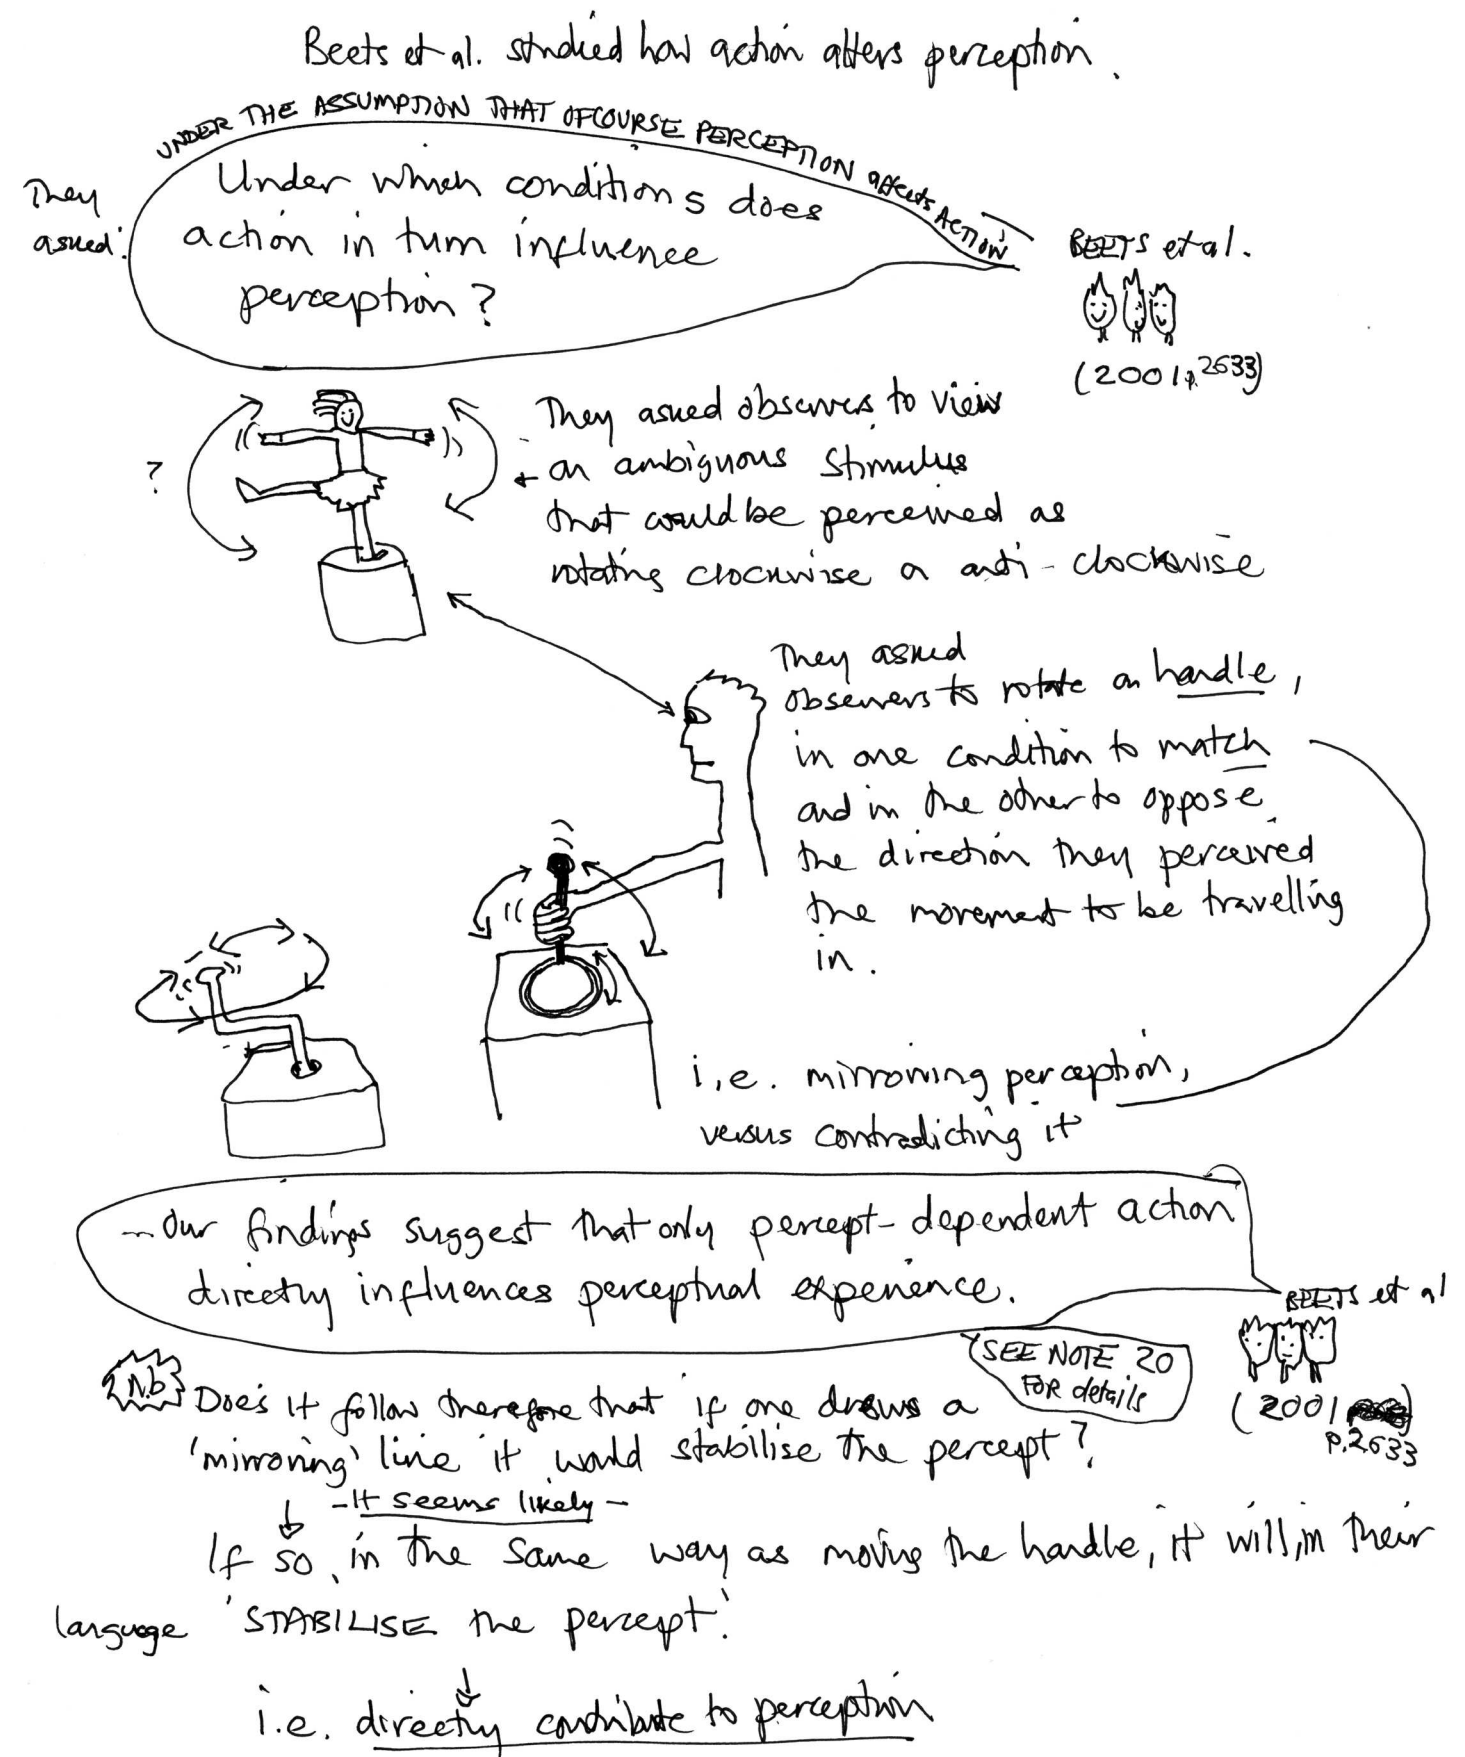 Beets et al. studied how action alters perception.
UNDER THE ASSUMPTION THAT OFCOURSE PERCEPTION affects ACTION
They
asked:
Under which conditions does
action in turn influence
perception?
BEETS et al.
(2001, p.2633)
?
They asked observers to view
an ambiguous stimulus
that could be perceived as
rotating clockwise or anti-clockwise
They asked
observers to rotate an handle,
in one condition to match
and in the other to oppose
the direction they perceived
the movement to be travelling
in.
i.e. mirroring perception,
versus contradicting it
Our findings suggest that only percept-dependent action
directly influences perceptual experience.
BEETS et al
(2001
p.2633)
SEE NOTE 20
FOR details
N.b
Does it follow therefore that if one draws a
'mirroring' line it would stabilise the percept?
- It seems likely -
If so, in the same way as moving the handle, it will, in their
language 'STABILISE the percept'.
i.e. directly contribute to perception